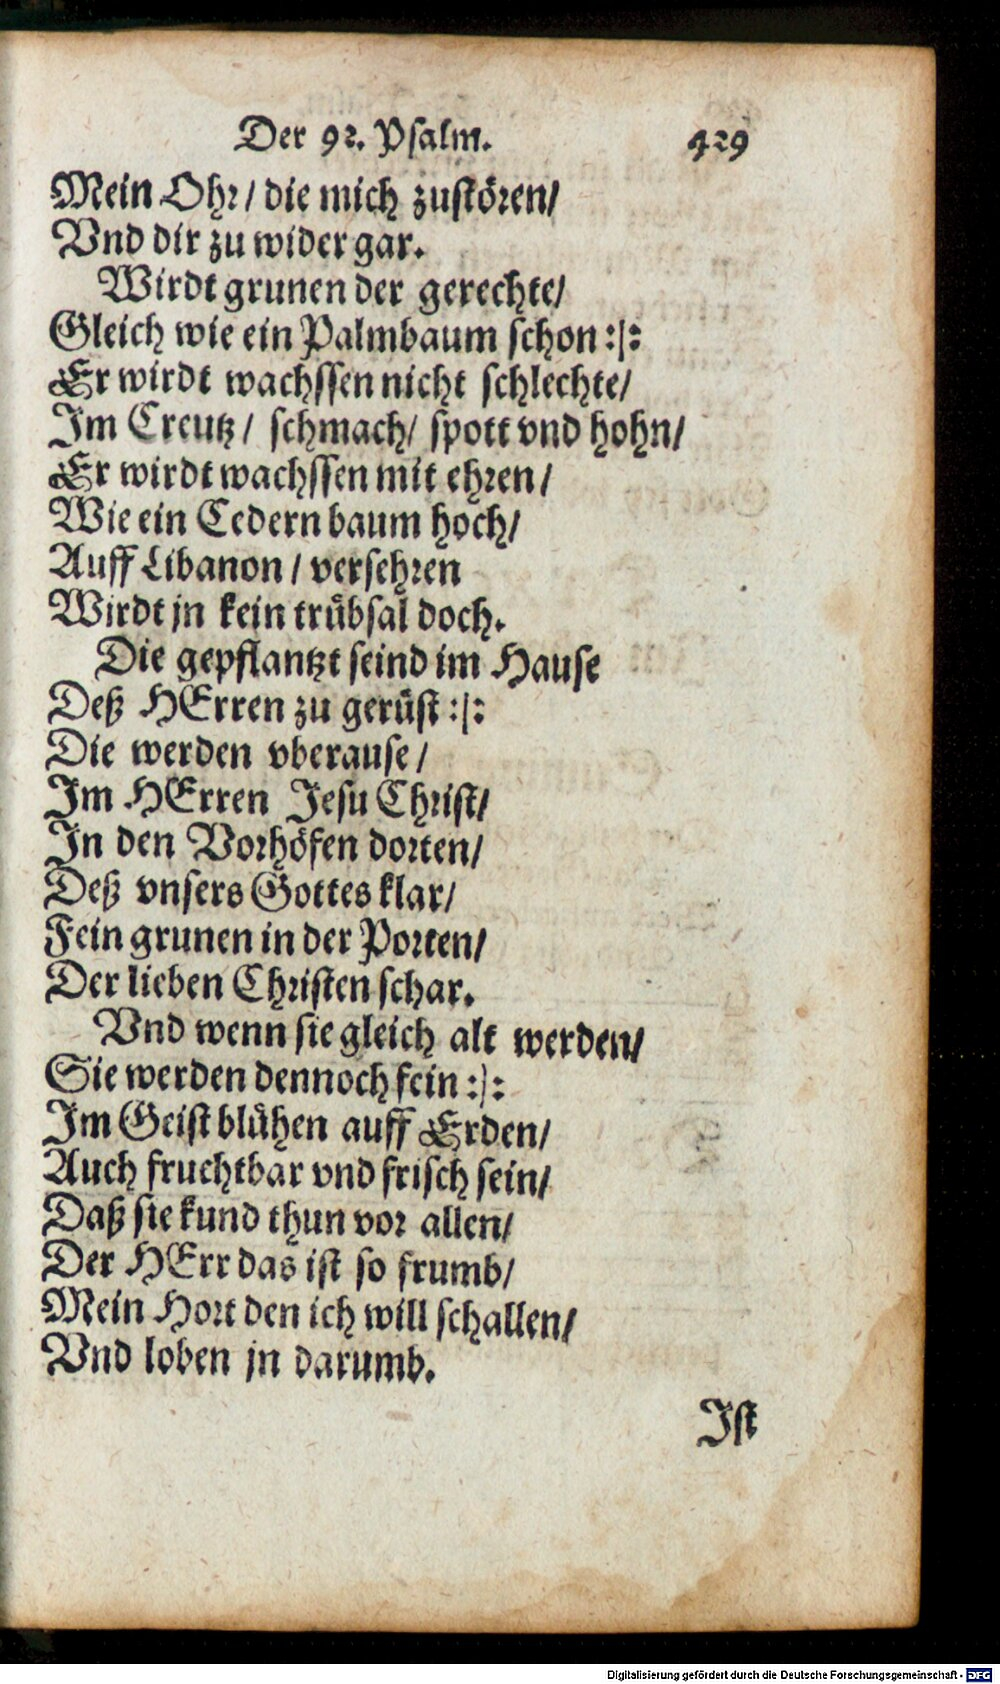 Der 92. Psalm. 429
Mein Ohr / die mich zustören /
Vnd dir zu wider gar.
Wirdt grunen der gerechte /
Gleich wie ein Palmbaum schon :|:
Er wirdt wachssen nicht schlechte /
Im Creutz / schmach / spott vnd hohn /
Er wirdt wachssen mit ehren /
Wie ein Cedern baum hoch /
Auff Libanon / versehren
Wirdt jn kein trübsal doch.
Die gepflantzt seind im Hause
Deß HErren zu gerüst :|:
Die werden vberause /
Im HErren Jesu Christ /
In den Vorhöfen dorten /
Deß vnsers Gottes klar /
Fein grunen in der Porten /
Der lieben Christen schar.
Vnd wenn sie gleich alt werden /
Sie werden dennoch fein :|:
Im Geist blühen auff Erden /
Auch fruchtbar vnd frisch sein /
Daß sie kund thun vor allen /
Der HErr das ist so frumb /
Mein Hort den ich will schallen /
Vnd loben jn darumb.
Ist
Digitalisierung gefördert durch die Deutsche Forschungsgemeinschaft - DFG